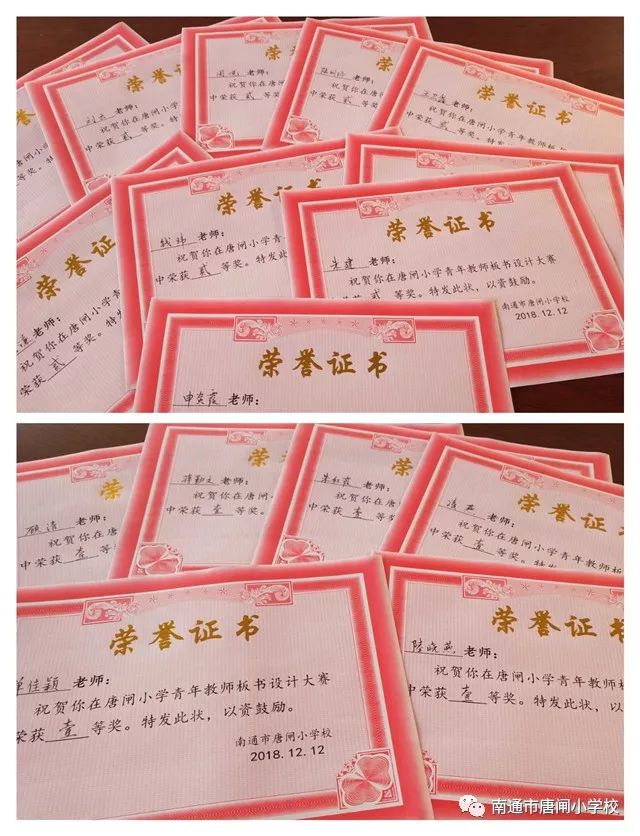 刘云 老师：
祝贺你在唐闸小学
中荣获 贰 等奖。特
老师：
祝贺你在唐闸小
中荣获 贰 等奖。特发此状
荣
老师：
祝贺你在唐闸小
中荣获 贰
荣誉证书
老师：
祝贺你在唐闸小学青年教师板
中荣获 贰 等奖。特发
荣誉证书
老师：
祝贺你在唐闸小学青
荣获 贰 等奖。特发
荣誉证书
钱玮 老师：
祝贺你在唐闸小学青年
中荣获 贰 等奖。特发此
荣誉证书
朱建 老师：
祝贺你在唐闸小学青年教师板书设计大赛
荣获 贰 等奖。特发此状，以资鼓励。
南通市唐闸小学校
2018.12.12
荣誉证书
申炎霞 老师：
荣
顾清 老师：
祝贺你在唐
中荣获 壹 等
荣
蒋勤文 老师：
祝贺你在唐闸小学
中荣获 壹 等奖。
荣
朱红霞 老师：
祝贺你在唐闸
中荣获 壹 等
荣誉证书
老师：
祝贺你在唐闸小学青年教师板
中荣获 壹 等奖。特发此
荣誉证书
单佳颖 老师：
祝贺你在唐闸小学青年教师板书设计大赛
荣获 壹 等奖。特发此状，以资鼓励。
南通市唐闸小学校
2018.12.12
荣誉证书
陆晓燕 老师：
祝贺你在唐闸小学青年教师板
中荣获 壹 等奖。特发此状，以
南通市唐
2018
南通市唐闸小学校